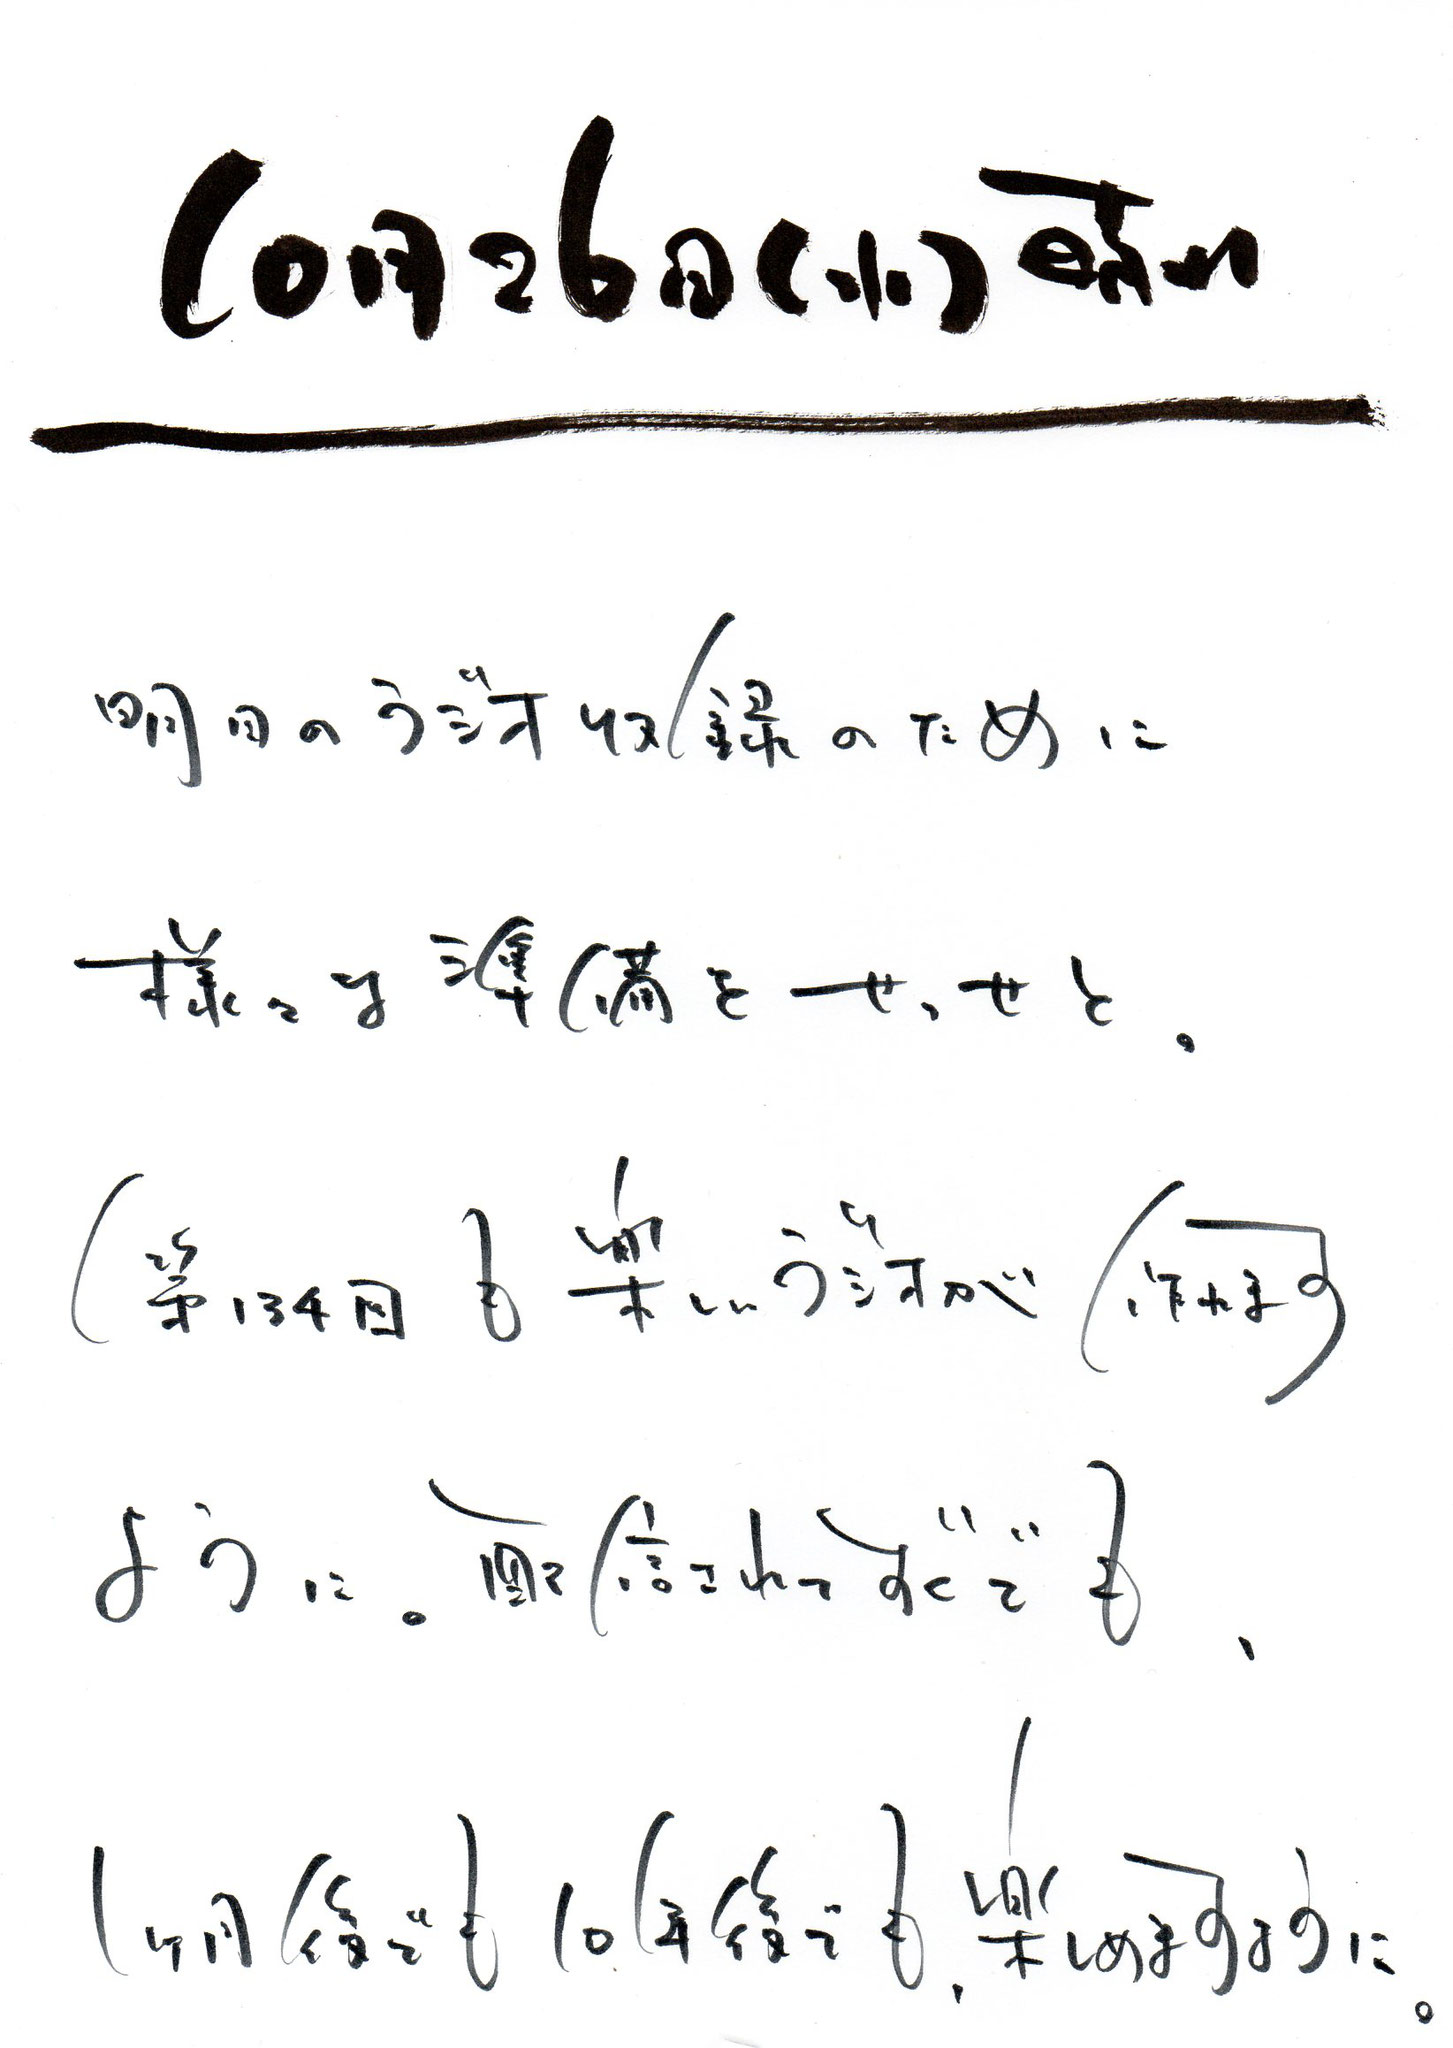 10月26日(水)晴れ
明日のラジオ収録のために
様々な準備をせっせと。
第134回も楽しいラジオが作れます
ように。配信されてすぐでも、
1ヶ月後でも10年後でも、楽しめますように。